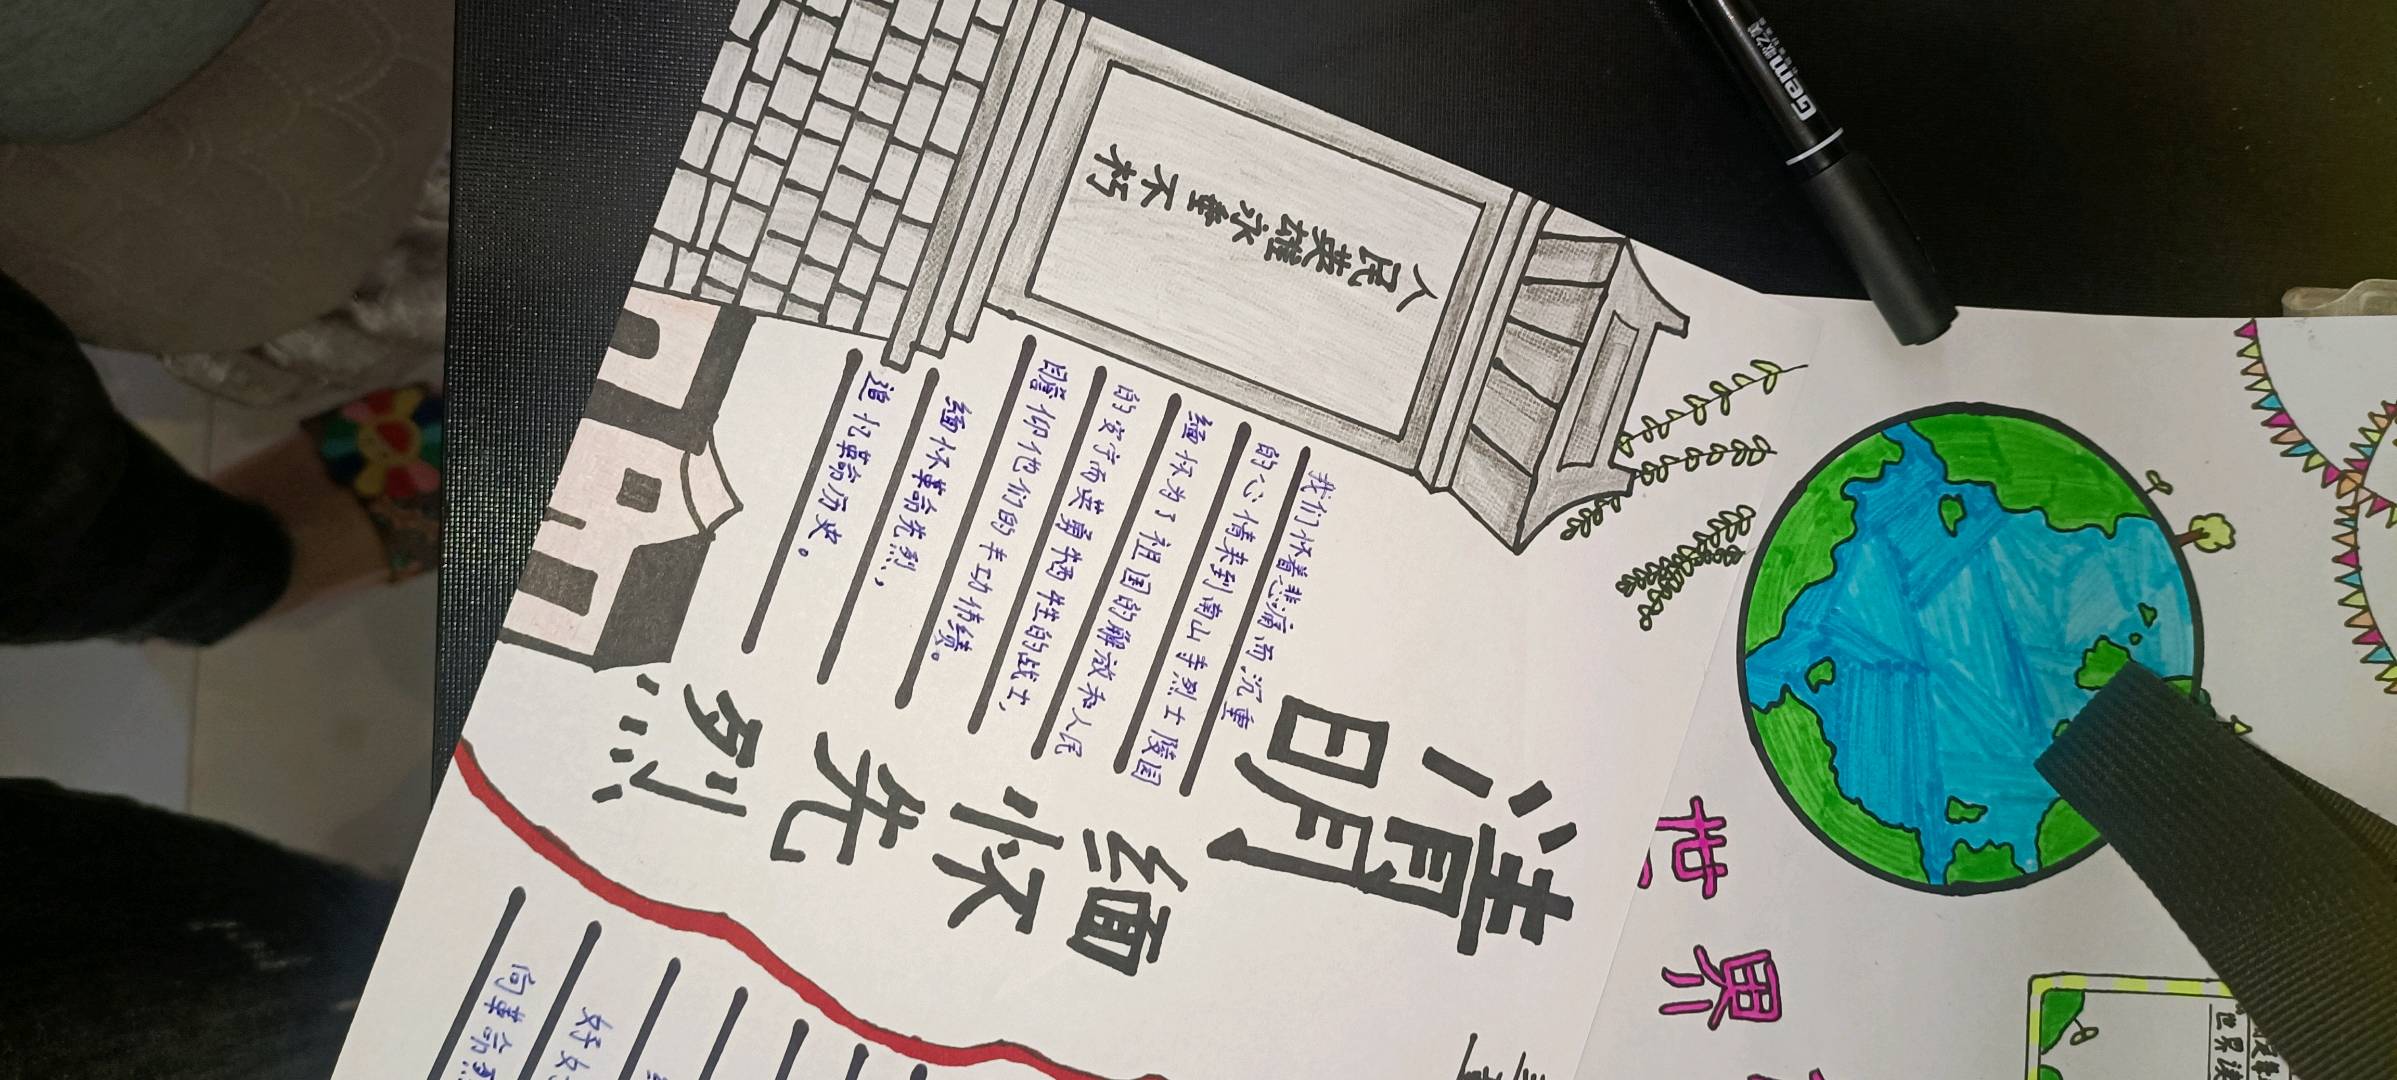 人民英雄永垂不朽
清明
缅怀先烈
我们怀着悲痛而沉重
的心情来到南山寺烈士陵园
缅怀为了祖国的解放和人民
的安宁而英勇牺牲的战士,
瞻仰他们的丰功伟绩。
缅怀革命先烈,
追忆革命历史。
好好
向革命烈
世界
Gemi